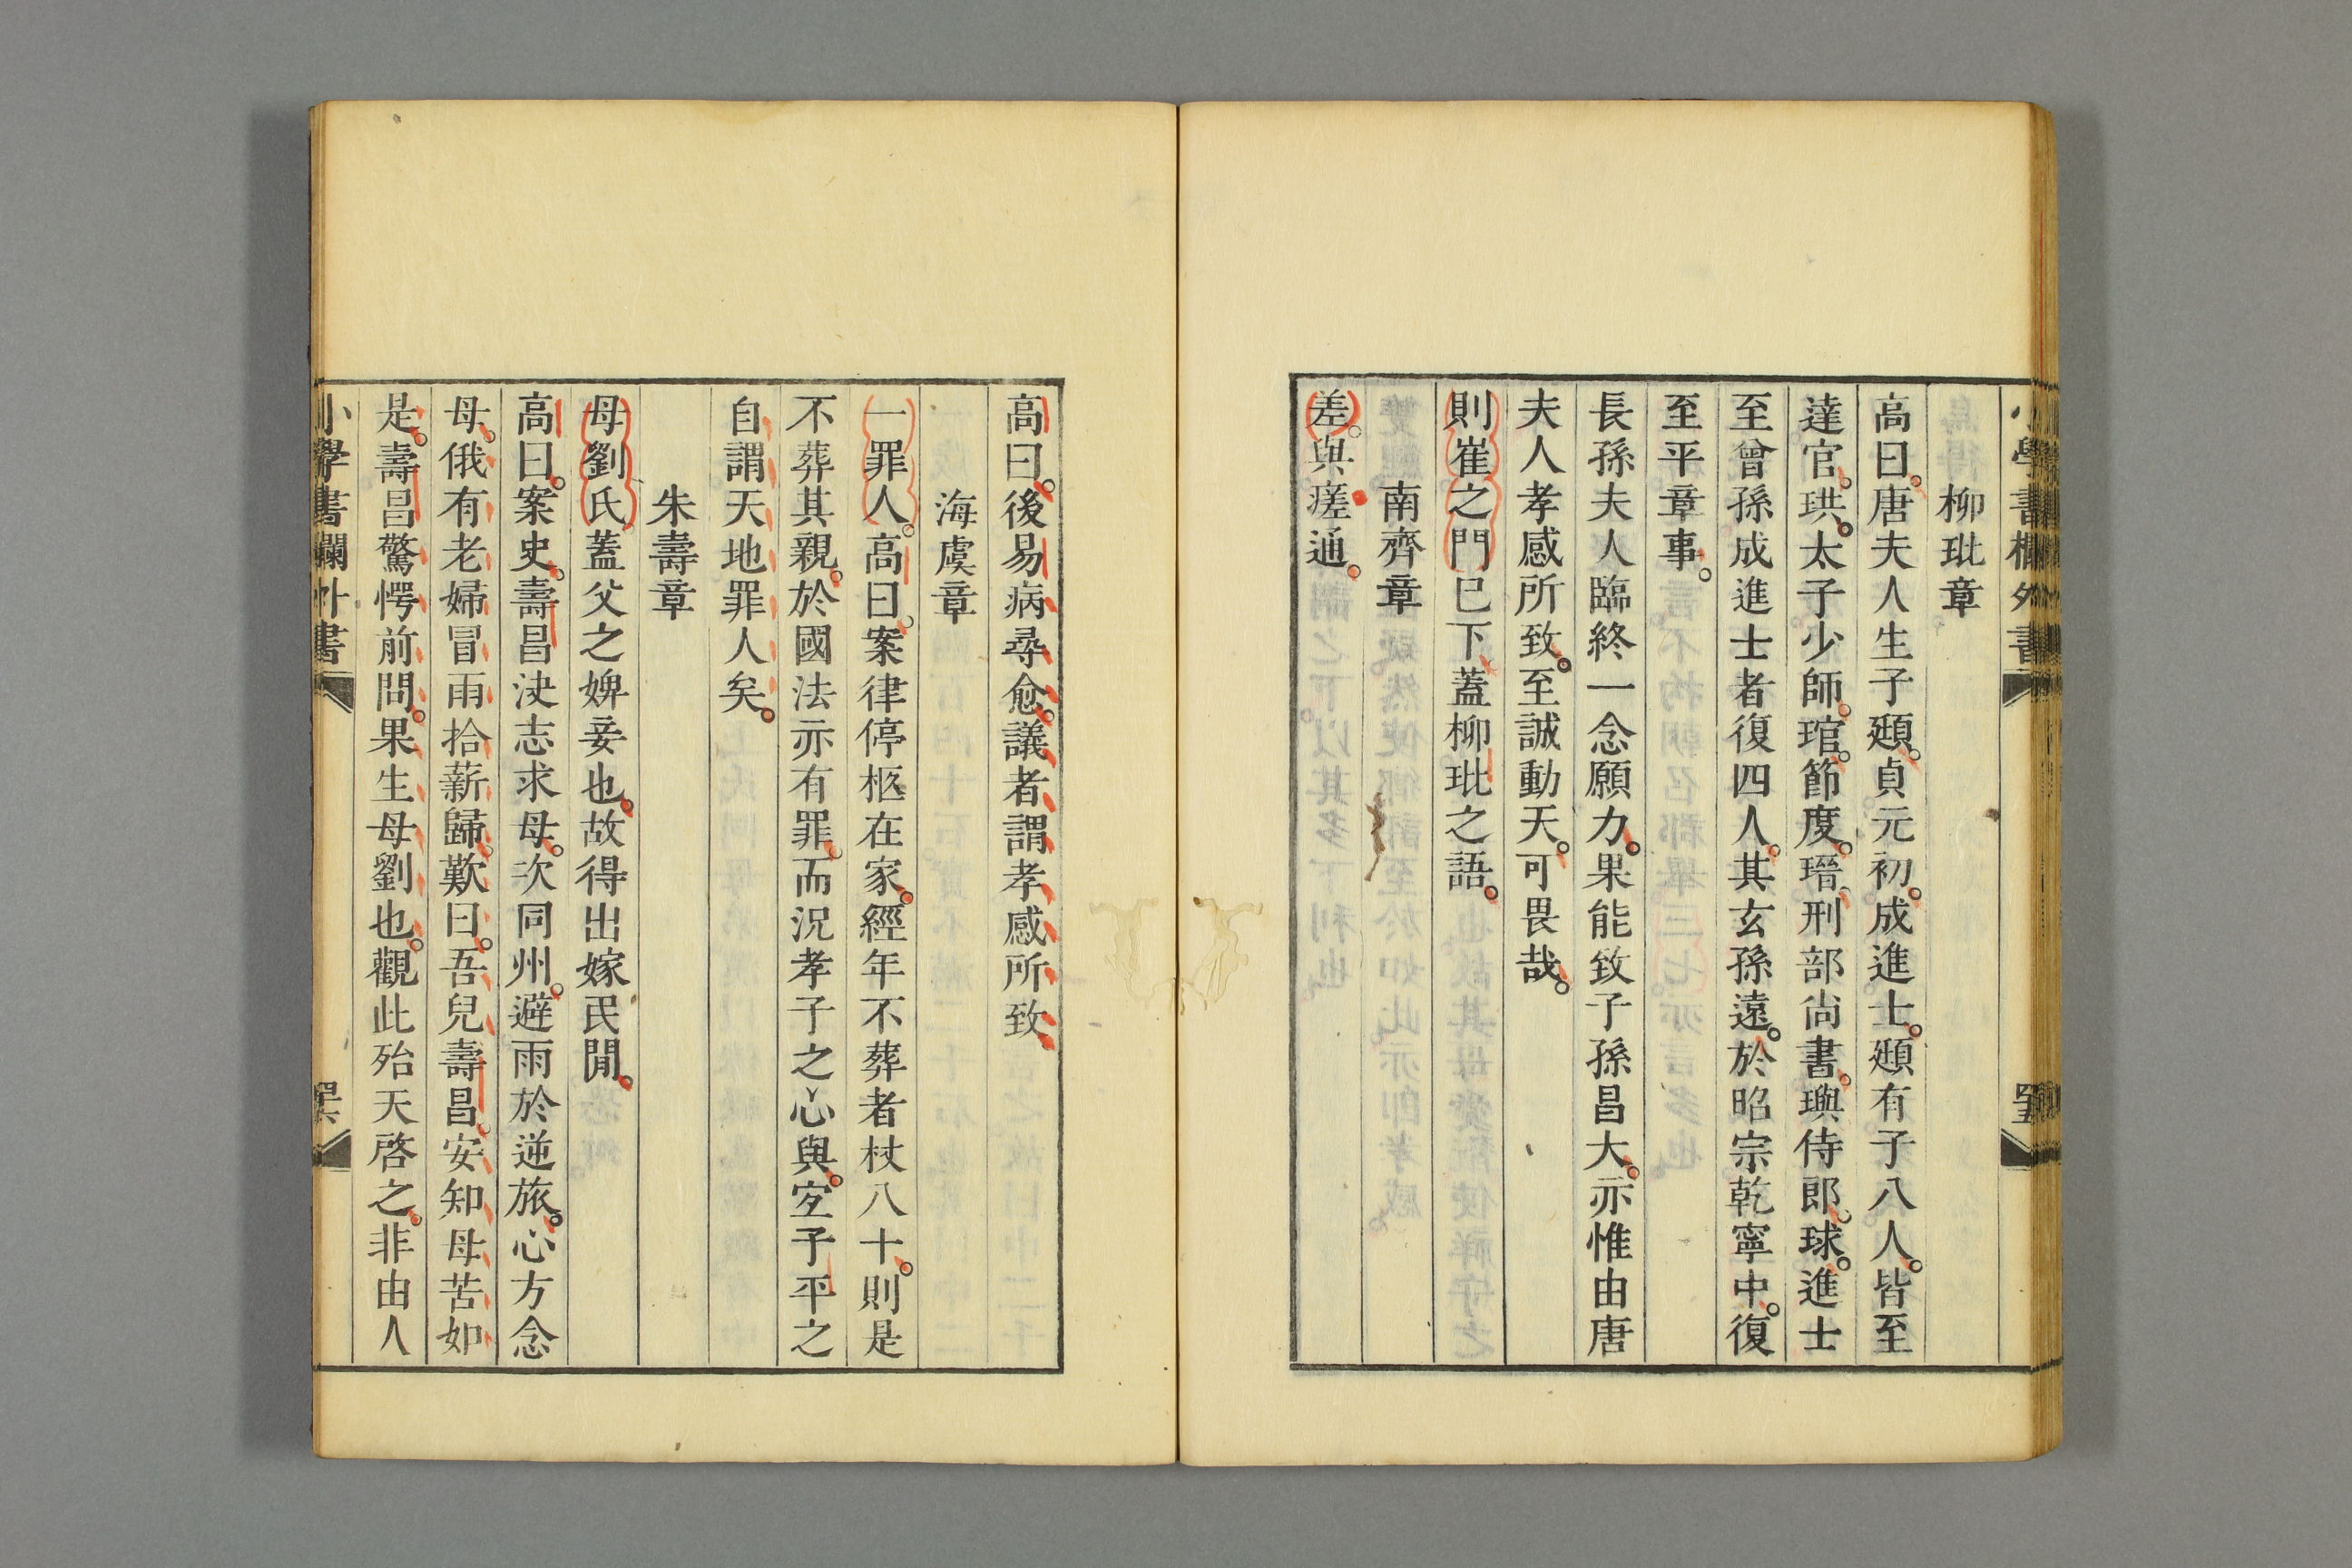 小學書欄外書 四五
柳玭章
高曰。唐夫人生子颋。貞元初。成進士。颋有子八人。皆至
達官。珙。太子少師。琯。節度。瑨。刑部尙書。璵侍郎。球。進士
至曾孫成進士者復四人。其玄孫遠。於昭宗乾寧中。復
至平章事。
長孫夫人臨終一念願力。果能致子孫昌大。亦惟由唐
夫人孝感所致。至誠動天。可畏哉。
則崔之門已下。蓋柳玭之語。
南齊章
差。與瘥通。
高曰。後易病尋愈。議者謂孝感所致。
海虞章
一罪人。高曰。案律停柩在家。經年不葬者杖八十。則是
不葬其親。於國法亦有罪。而況孝子之心與。宜子平之
自謂天地罪人矣。
朱壽章
母劉氏蓋父之婢妾也。故得出嫁民閒。
高曰。案史。壽昌決志求母。次同州。避雨於逆旅。心方念
母。俄有老婦冒雨拾薪歸。歎曰。吾兒壽昌。安知母苦如
是。壽昌驚愕前問。果生母劉也。觀此殆天啓之。非由人
小學書欄外書 四六